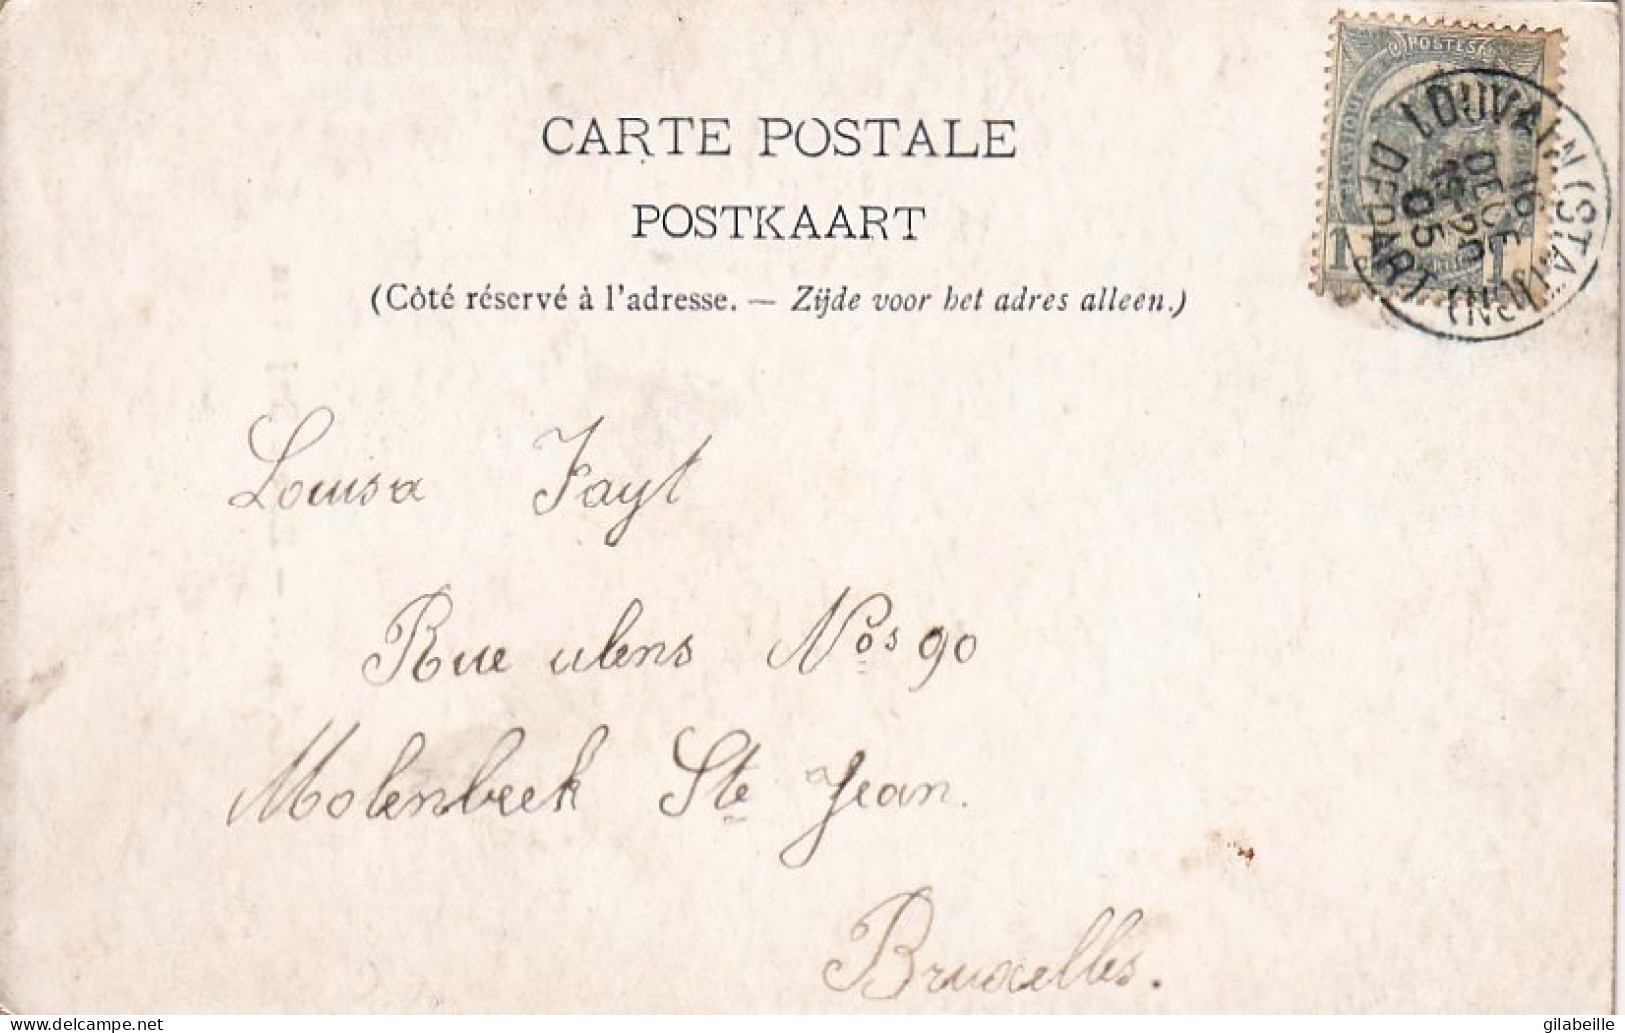 CARTE POSTALE
POSTKAART
(Côté réservé à l'adresse. — Zijde voor het adres alleen.)
POSTES
1 1
LOUVAIN (STATION)
DEPART
16
DECE
05
Louisa Fayt
Rue ulens Nos 90
Molenbeek Ste Jean.
Bruxelles.
gilabeille